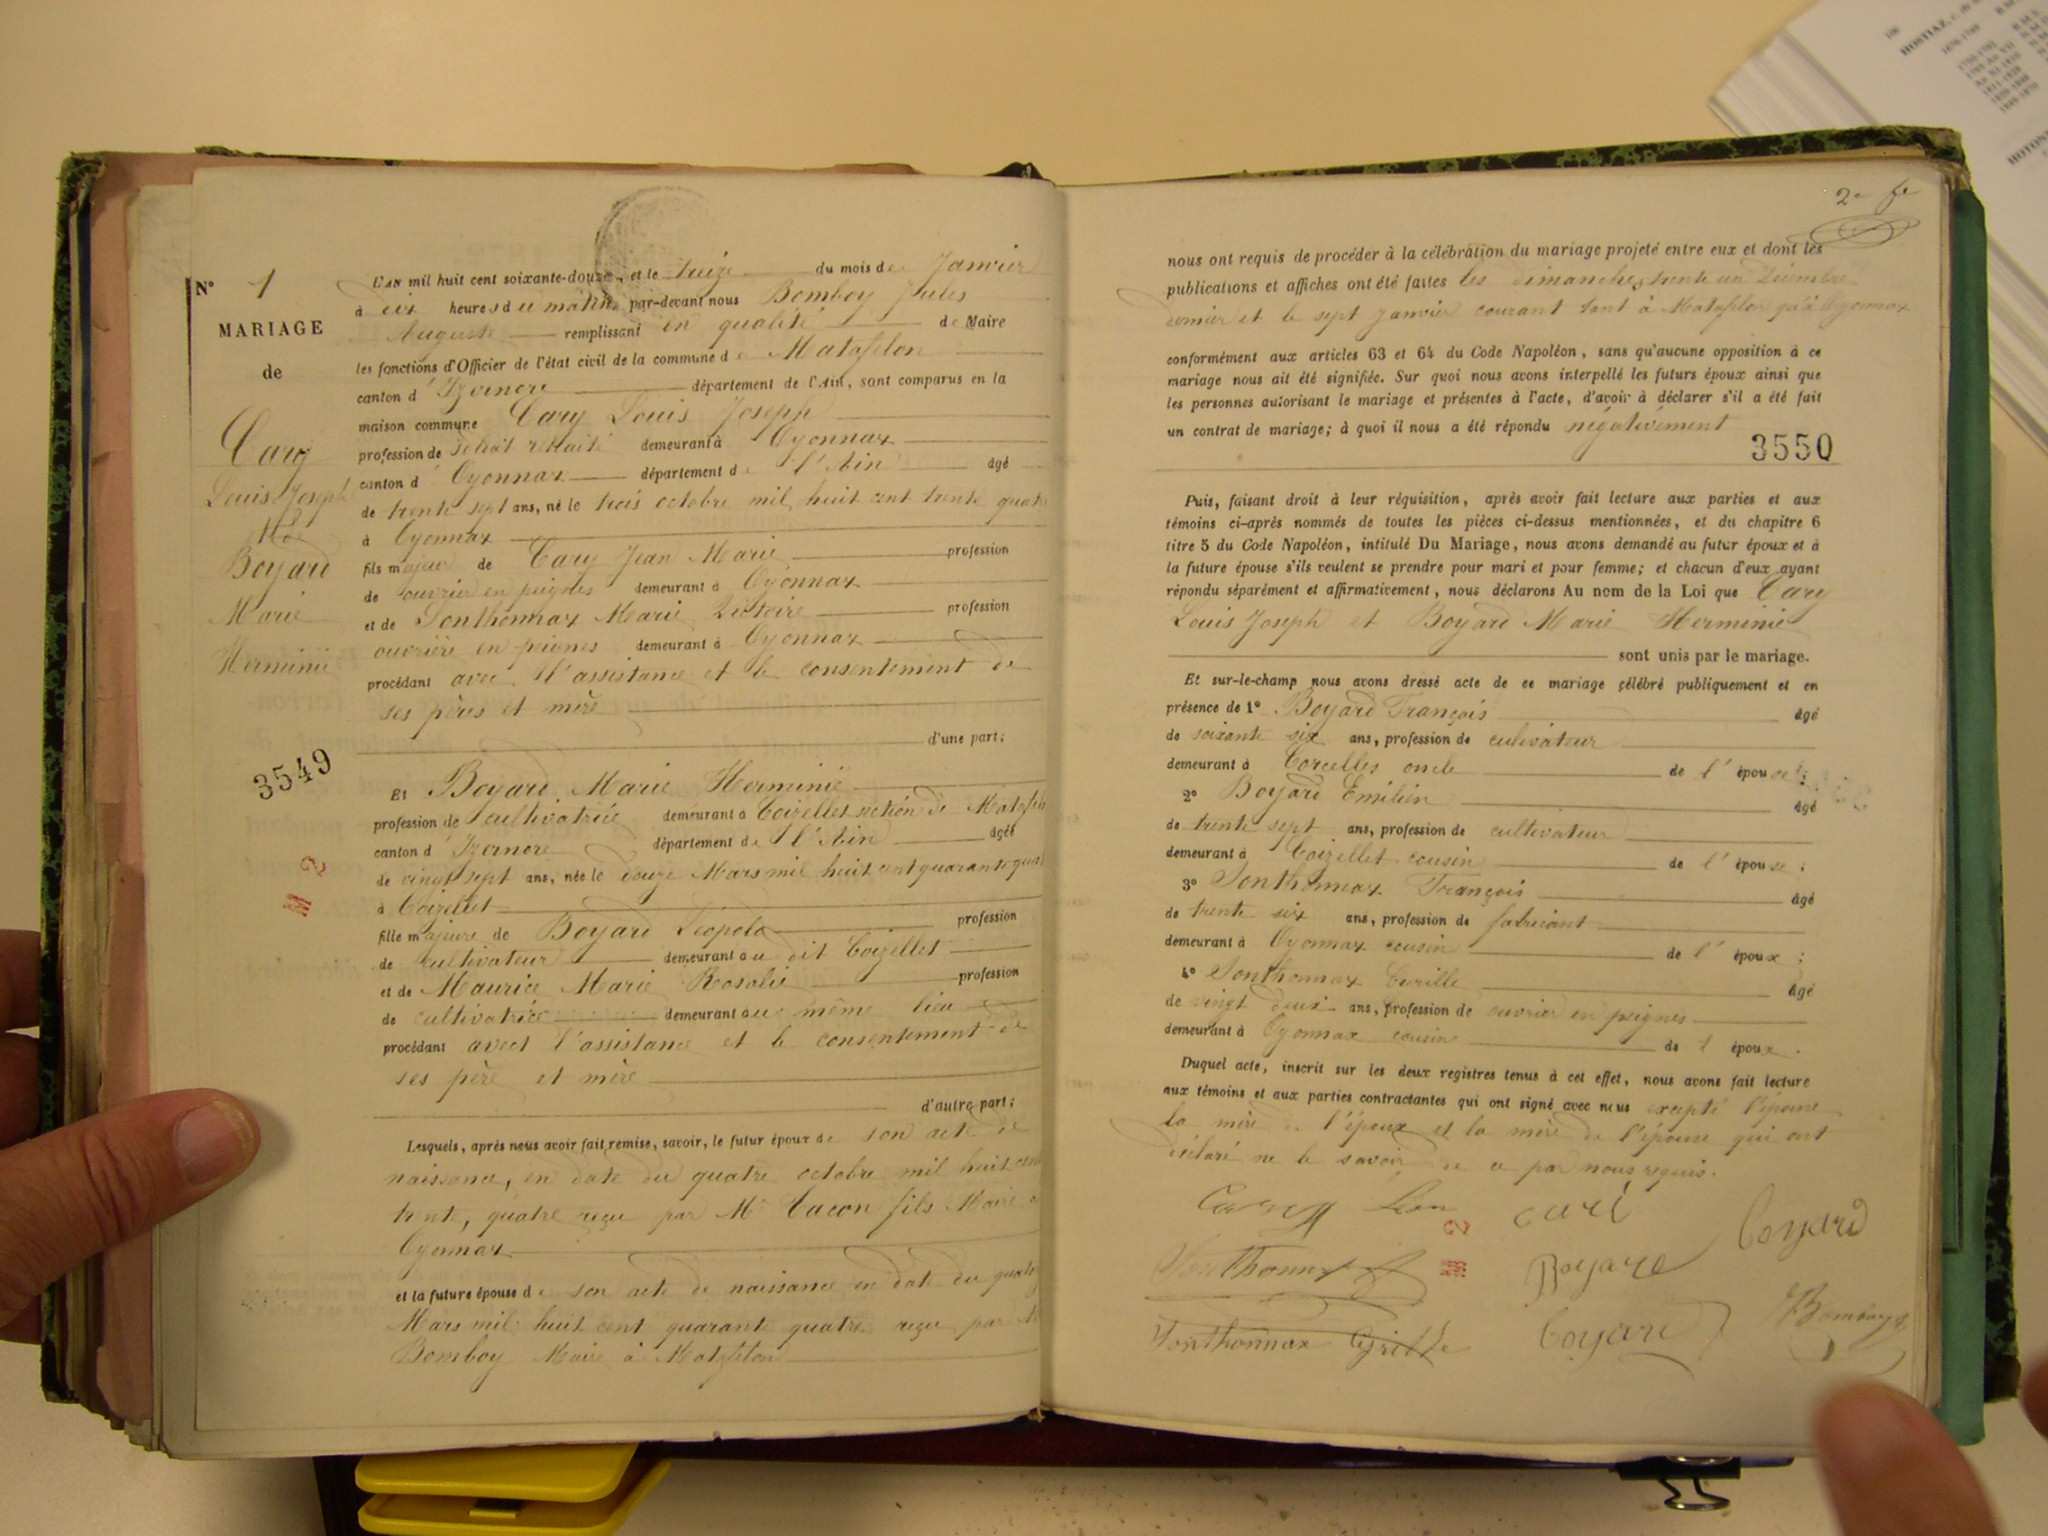 N° 1
MARIAGE
de
Cary
Louis Joseph
Boyard
Marie
Herminie
3549
M 2
L'AN mil huit cent soixante-douze, et le treize du mois de Janvier
à dix heures du matin par-devant nous Bomboy Jules
Auguste remplissant en qualité de Maire
les fonctions d'Officier de l'état civil de la commune de Matafelon
canton d'Izernore département de l'Ain, sont comparus en la
maison commune Cary Louis Joseph
profession de soldat retraité demeurant à Oyonnax
canton d'Oyonnax département de l'Ain âgé
de trente sept ans, né le trois octobre mil huit cent trente quatre
à Oyonnax
fils majeur de Cary Jean Marie profession
de ouvrier en peignes demeurant à Oyonnax
et de Sonthonnax Marie Victoire profession
ouvrière en peignes demeurant à Oyonnax
procédant avec l'assistance et le consentement de
ses pères et mère
d'une part;
Et Boyard Marie Herminie
profession de cultivatrice demeurant à Coizellet section de
canton d'Izernore département de l'Ain âgée
de vingt sept ans, née le douze Mars mil huit cent quarante
à Coizellet
fille majeure de Boyard Léopold profession
de cultivateur demeurant au dit Coizellet
et de Maurice Marie Rosalie profession
de cultivatrice demeurant au même lieu
procédant avect l'assistance et le consentement de
ses père et mère
d'autre part;
Lesquels, après nous avoir fait remise, savoir, le futur époux de son acte de
naissance, en date du quatre octobre mil huit cent
trente, quatre reçu par Mr Tacon fils Maire
Oyonnax
et la future épouse de son acte de naissance en date du
Mars mil huit cent quarante quatre reçu par
Bomboy Maire à Matafelon
2e
nous ont requis de procéder à la célébration du mariage projeté entre eux et dont les
publications et affiches ont été faites les dimanches trente un Décembre
dernier et le sept Janvier courant tant à Matafelon qu'à Oyonnax
conformément aux articles 63 et 64 du Code Napoléon, sans qu'aucune opposition à ce
mariage nous ait été signifiée. Sur quoi nous avons interpellé les futurs époux ainsi que
les personnes autorisant le mariage et présentes à l'acte, d'avoir à déclarer s'il a été fait
un contrat de mariage; à quoi il nous a été répondu négativement
3550
Puis, faisant droit à leur réquisition, après avoir fait lecture aux parties et aux
témoins ci-après nommés de toutes les pièces ci-dessus mentionnées, et du chapitre 6
titre 5 du Code Napoléon, intitulé Du Mariage, nous avons demandé au futur époux et à
la future épouse s'ils veulent se prendre pour mari et pour femme; et chacun d'eux ayant
répondu séparément et affirmativement, nous déclarons Au nom de la Loi que Cary
Louis Joseph et Boyard Marie Herminie
sont unis par le mariage.
Et sur-le-champ nous avons dressé acte de ce mariage célébré publiquement et en
présence de 1° Boyard François âgé
de soixante six ans, profession de cultivateur
demeurant à Corcelles oncle de l'épouse;
2° Boyard Emilien âgé
de trente sept ans, profession de cultivateur
demeurant à Coizellet cousin de l'épouse;
3° Sonthonnax François âgé
de trente six ans, profession de fabricant
demeurant à Oyonnax cousin de l'époux;
4° Sonthonnax âgé
de vingt deux ans, profession de ouvrier en peignes
demeurant à Oyonnax cousin de l époux.
Duquel acte, inscrit sur les deux registres tenus à cet effet, nous avons fait lecture
aux témoins et aux parties contractantes qui ont signé avec nous excepté l'épouse
la mère de l'époux et la mère de l'épouse qui ont
déclaré ne le savoir de ce par nous requis.
curé Boyard
M 2
Sonthonnax Boyard
Sonthonnax Boyard Bomboy
HOSTIAZ